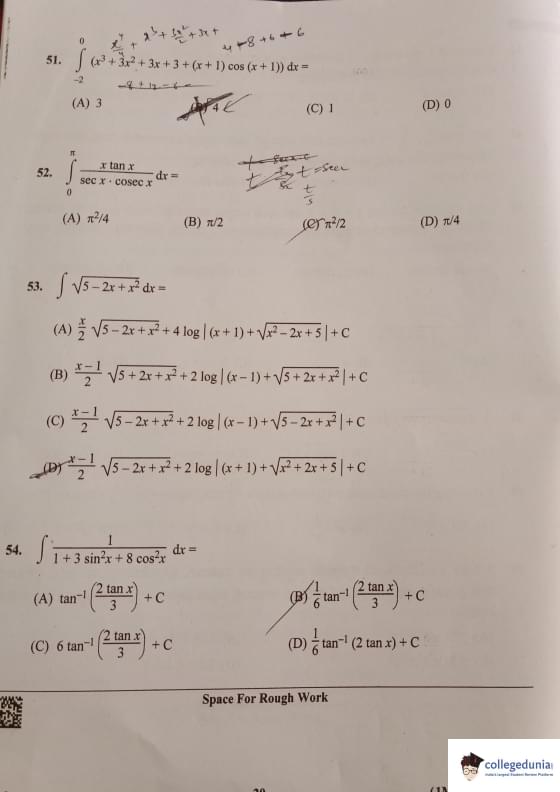 x⁴/4 + x³ + 3x²/2 + 3x +
4 - 8 + 6 - 6
51. ∫₋₂⁰ (x³ + 3x² + 3x + 3 + (x + 1) cos (x + 1)) dx =
-8 + 12 - 6
(A) 3 (B) 4 (C) 1 (D) 0
52. ∫₀^π (x tan x)/(sec x · cosec x) dx =
t = sec x
t/s
(A) π²/4 (B) π/2 (C) π²/2 (D) π/4
53. ∫ √(5 – 2x + x²) dx =
(A) x/2 √(5 – 2x + x²) + 4 log | (x + 1) + √(x² – 2x + 5) | + C
(B) (x – 1)/2 √(5 + 2x + x²) + 2 log | (x – 1) + √(5 + 2x + x²) | + C
(C) (x – 1)/2 √(5 – 2x + x²) + 2 log | (x – 1) + √(5 – 2x + x²) | + C
(D) (x – 1)/2 √(5 – 2x + x²) + 2 log | (x + 1) + √(x² + 2x + 5) | + C
54. ∫ 1/(1 + 3 sin²x + 8 cos²x) dx =
(A) tan⁻¹ (2 tan x/3) + C (B) 1/6 tan⁻¹ (2 tan x/3) + C
(C) 6 tan⁻¹ (2 tan x/3) + C (D) 1/6 tan⁻¹ (2 tan x) + C
Space For Rough Work
collegedunia
India's largest Student Review Platform